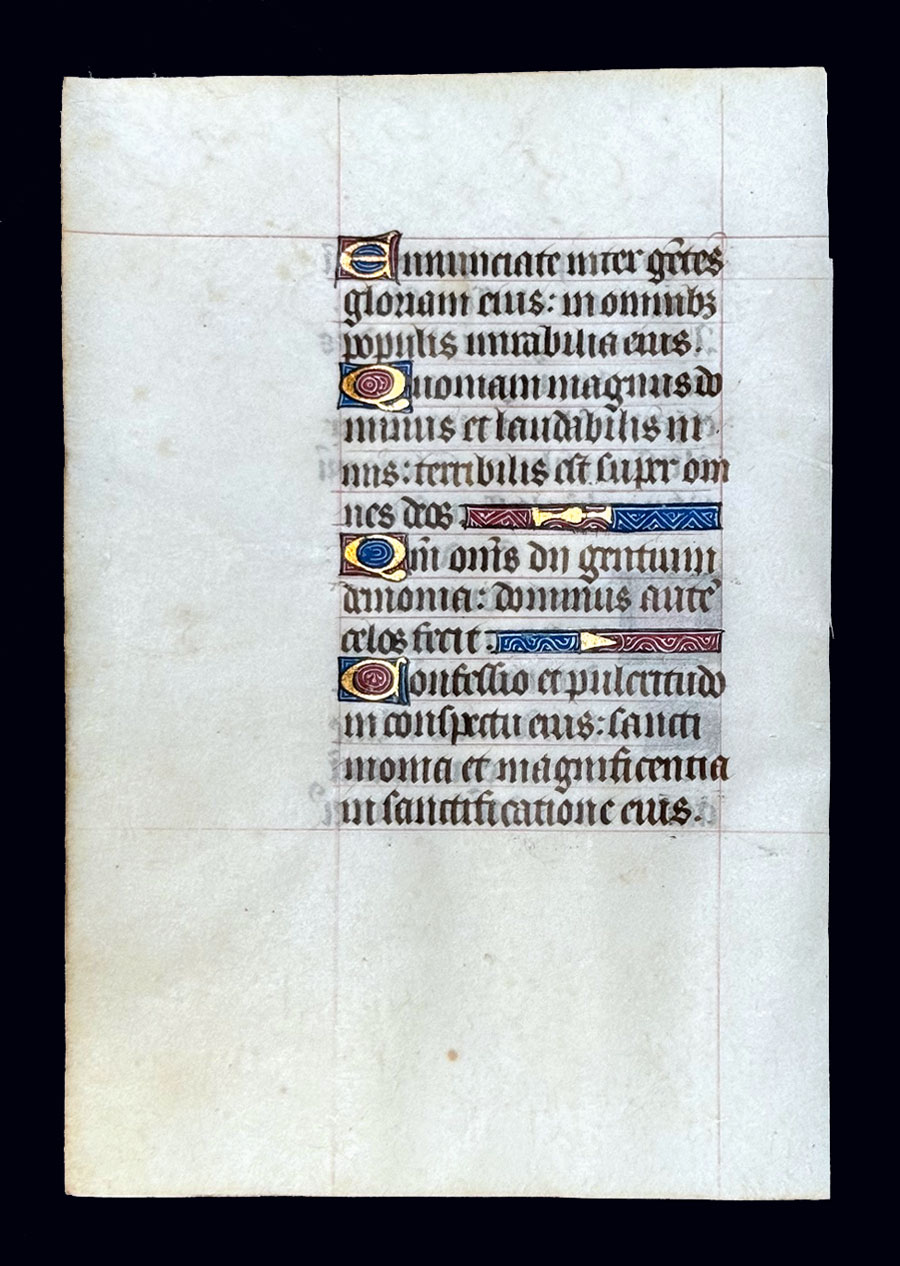 Annunciate inter gētes
gloriam eius: in omnibꝫ
populis mirabilia eius.
Quoniam magnus do
minus et laudabilis ni
mis: terribilis est super om
nes deos
Qm̄ om̄s dii gentium
demonia: dominus autē
celos fecit
Confessio et pulcritudo
in conspectu eius: sancti
monia et magnificentia
in sanctificatione eius.